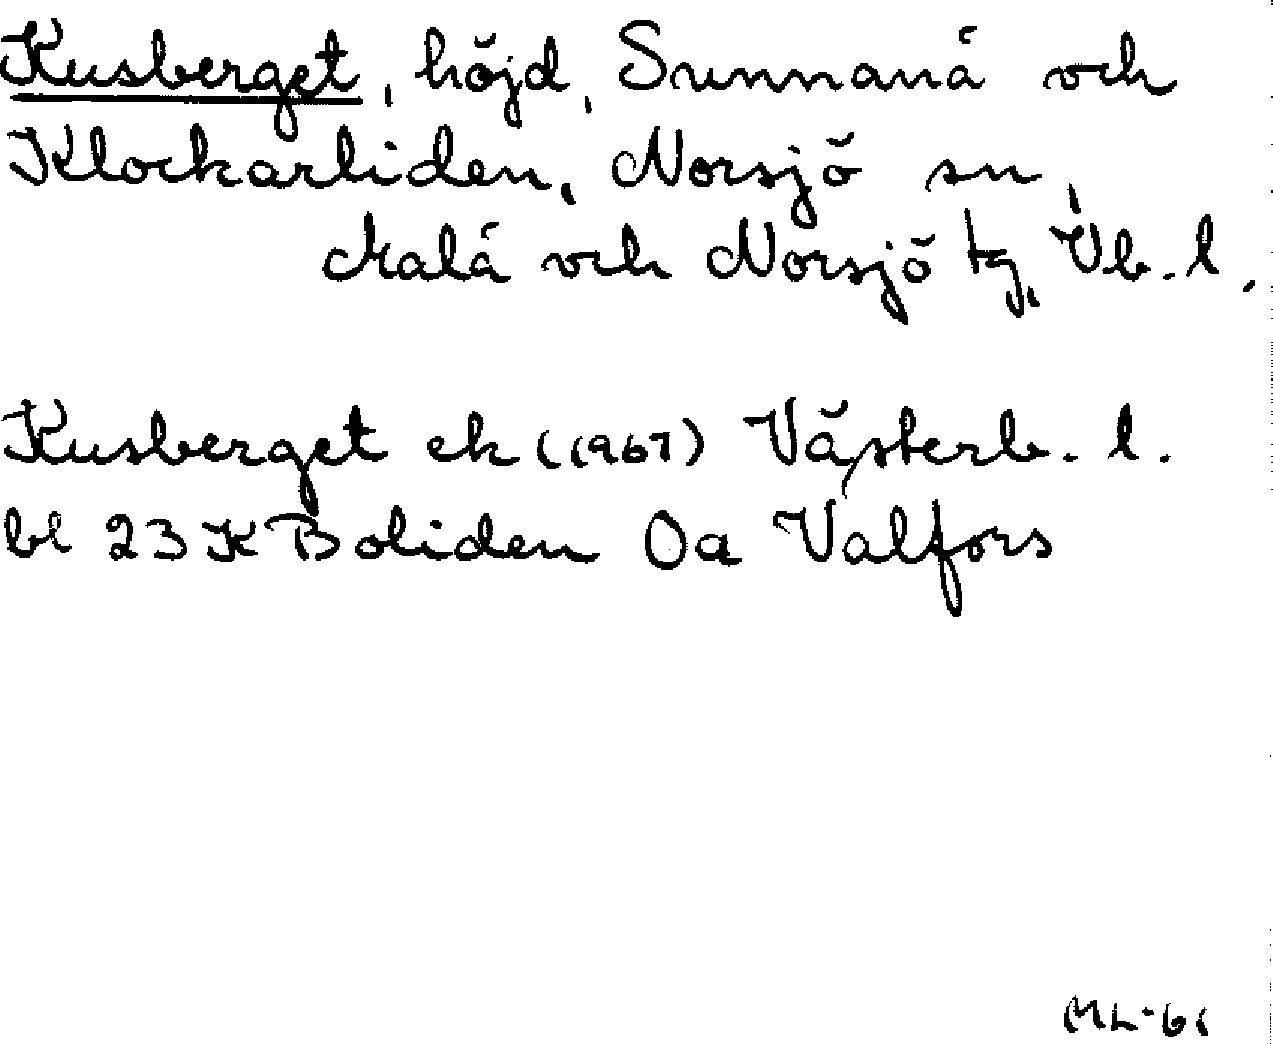 Kusberget, höjd, Sunnanå och
Klockarliden, Norsjö sn,
Malå och Norsjö tg, Vb. l.
Kusberget ek (1967) Västerb. l.
bl 23 K Boliden Oa Valfors
ML-61